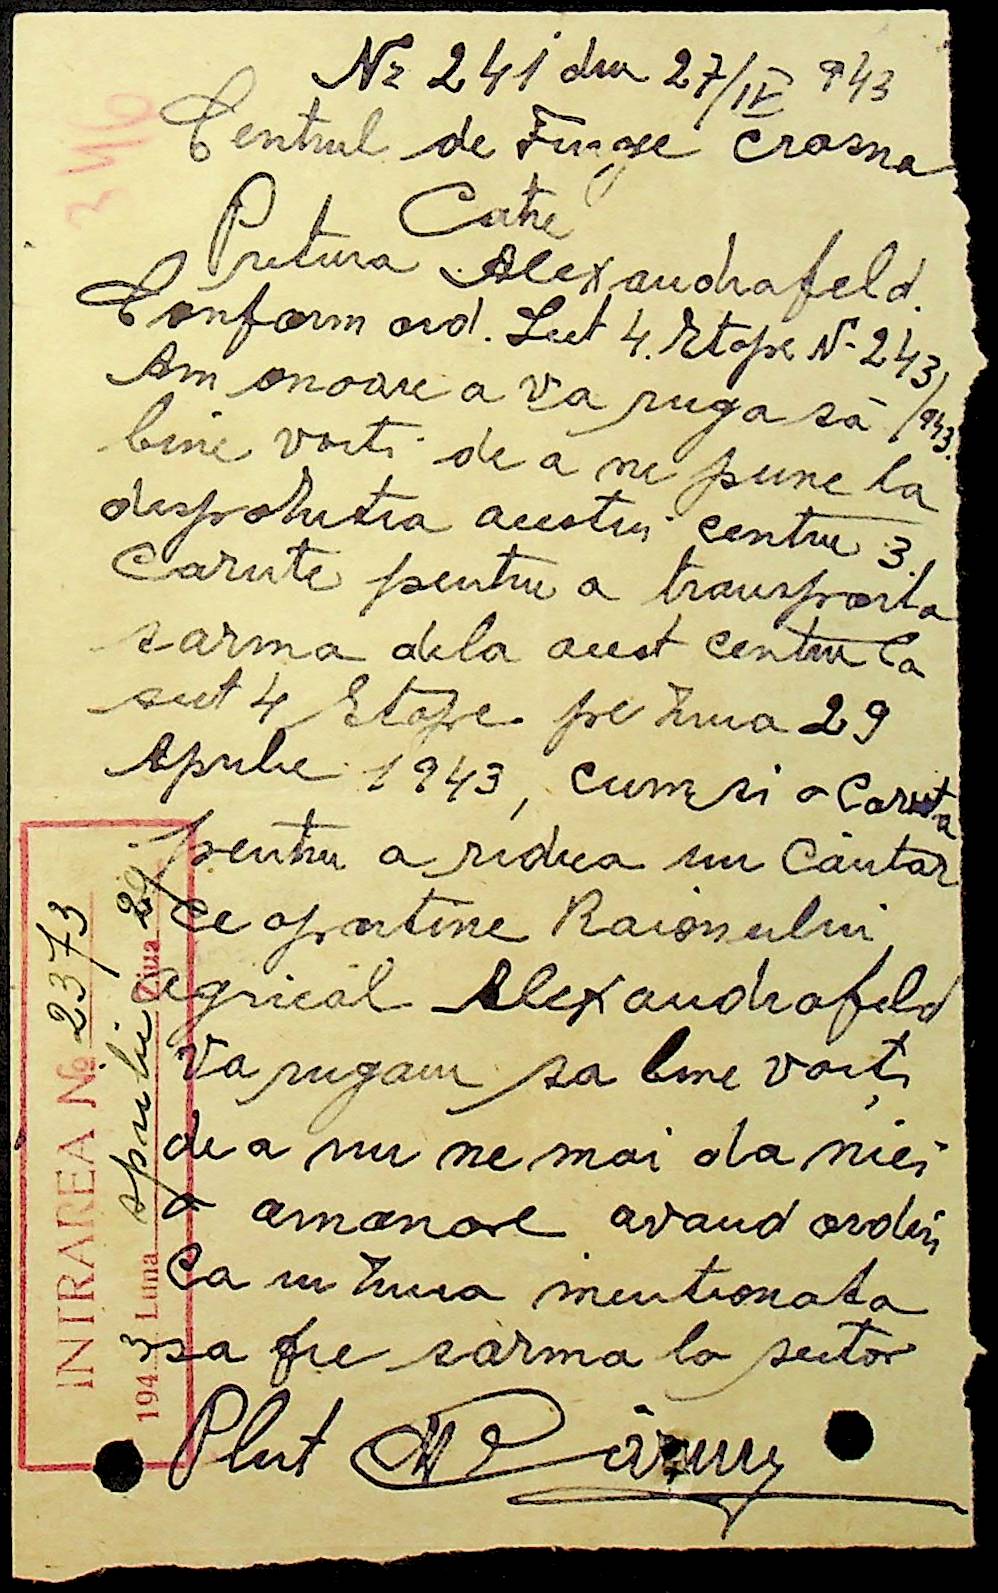 346
Nr 241 din 27/IV 943
Centrul de Furaje Crasna
Catre
Pretura Alexandrafeld.
Conform ord. Sect 4. Etape Nr 243/943.
Am onoare a va ruga sā
bine voiti de a ne pune la
dispozitia acestui centru 3.
Carute pentru a transporta
sarma dela acest centru la
sect 4 Etape pe ziua 29
Aprilie 1943, cum si o Caruta
pentru a ridica un Căntar
ce apartine Raionului
agricol Alexandrafeld
Va rugam sa bine voiți
de a nu ne mai da nici
o amanare avand ordin
Ca in ziua mentionata
sa fie sarma la sector
Plut
INTRAREA № 2373
1943 Luna Aprilie Ziua 29